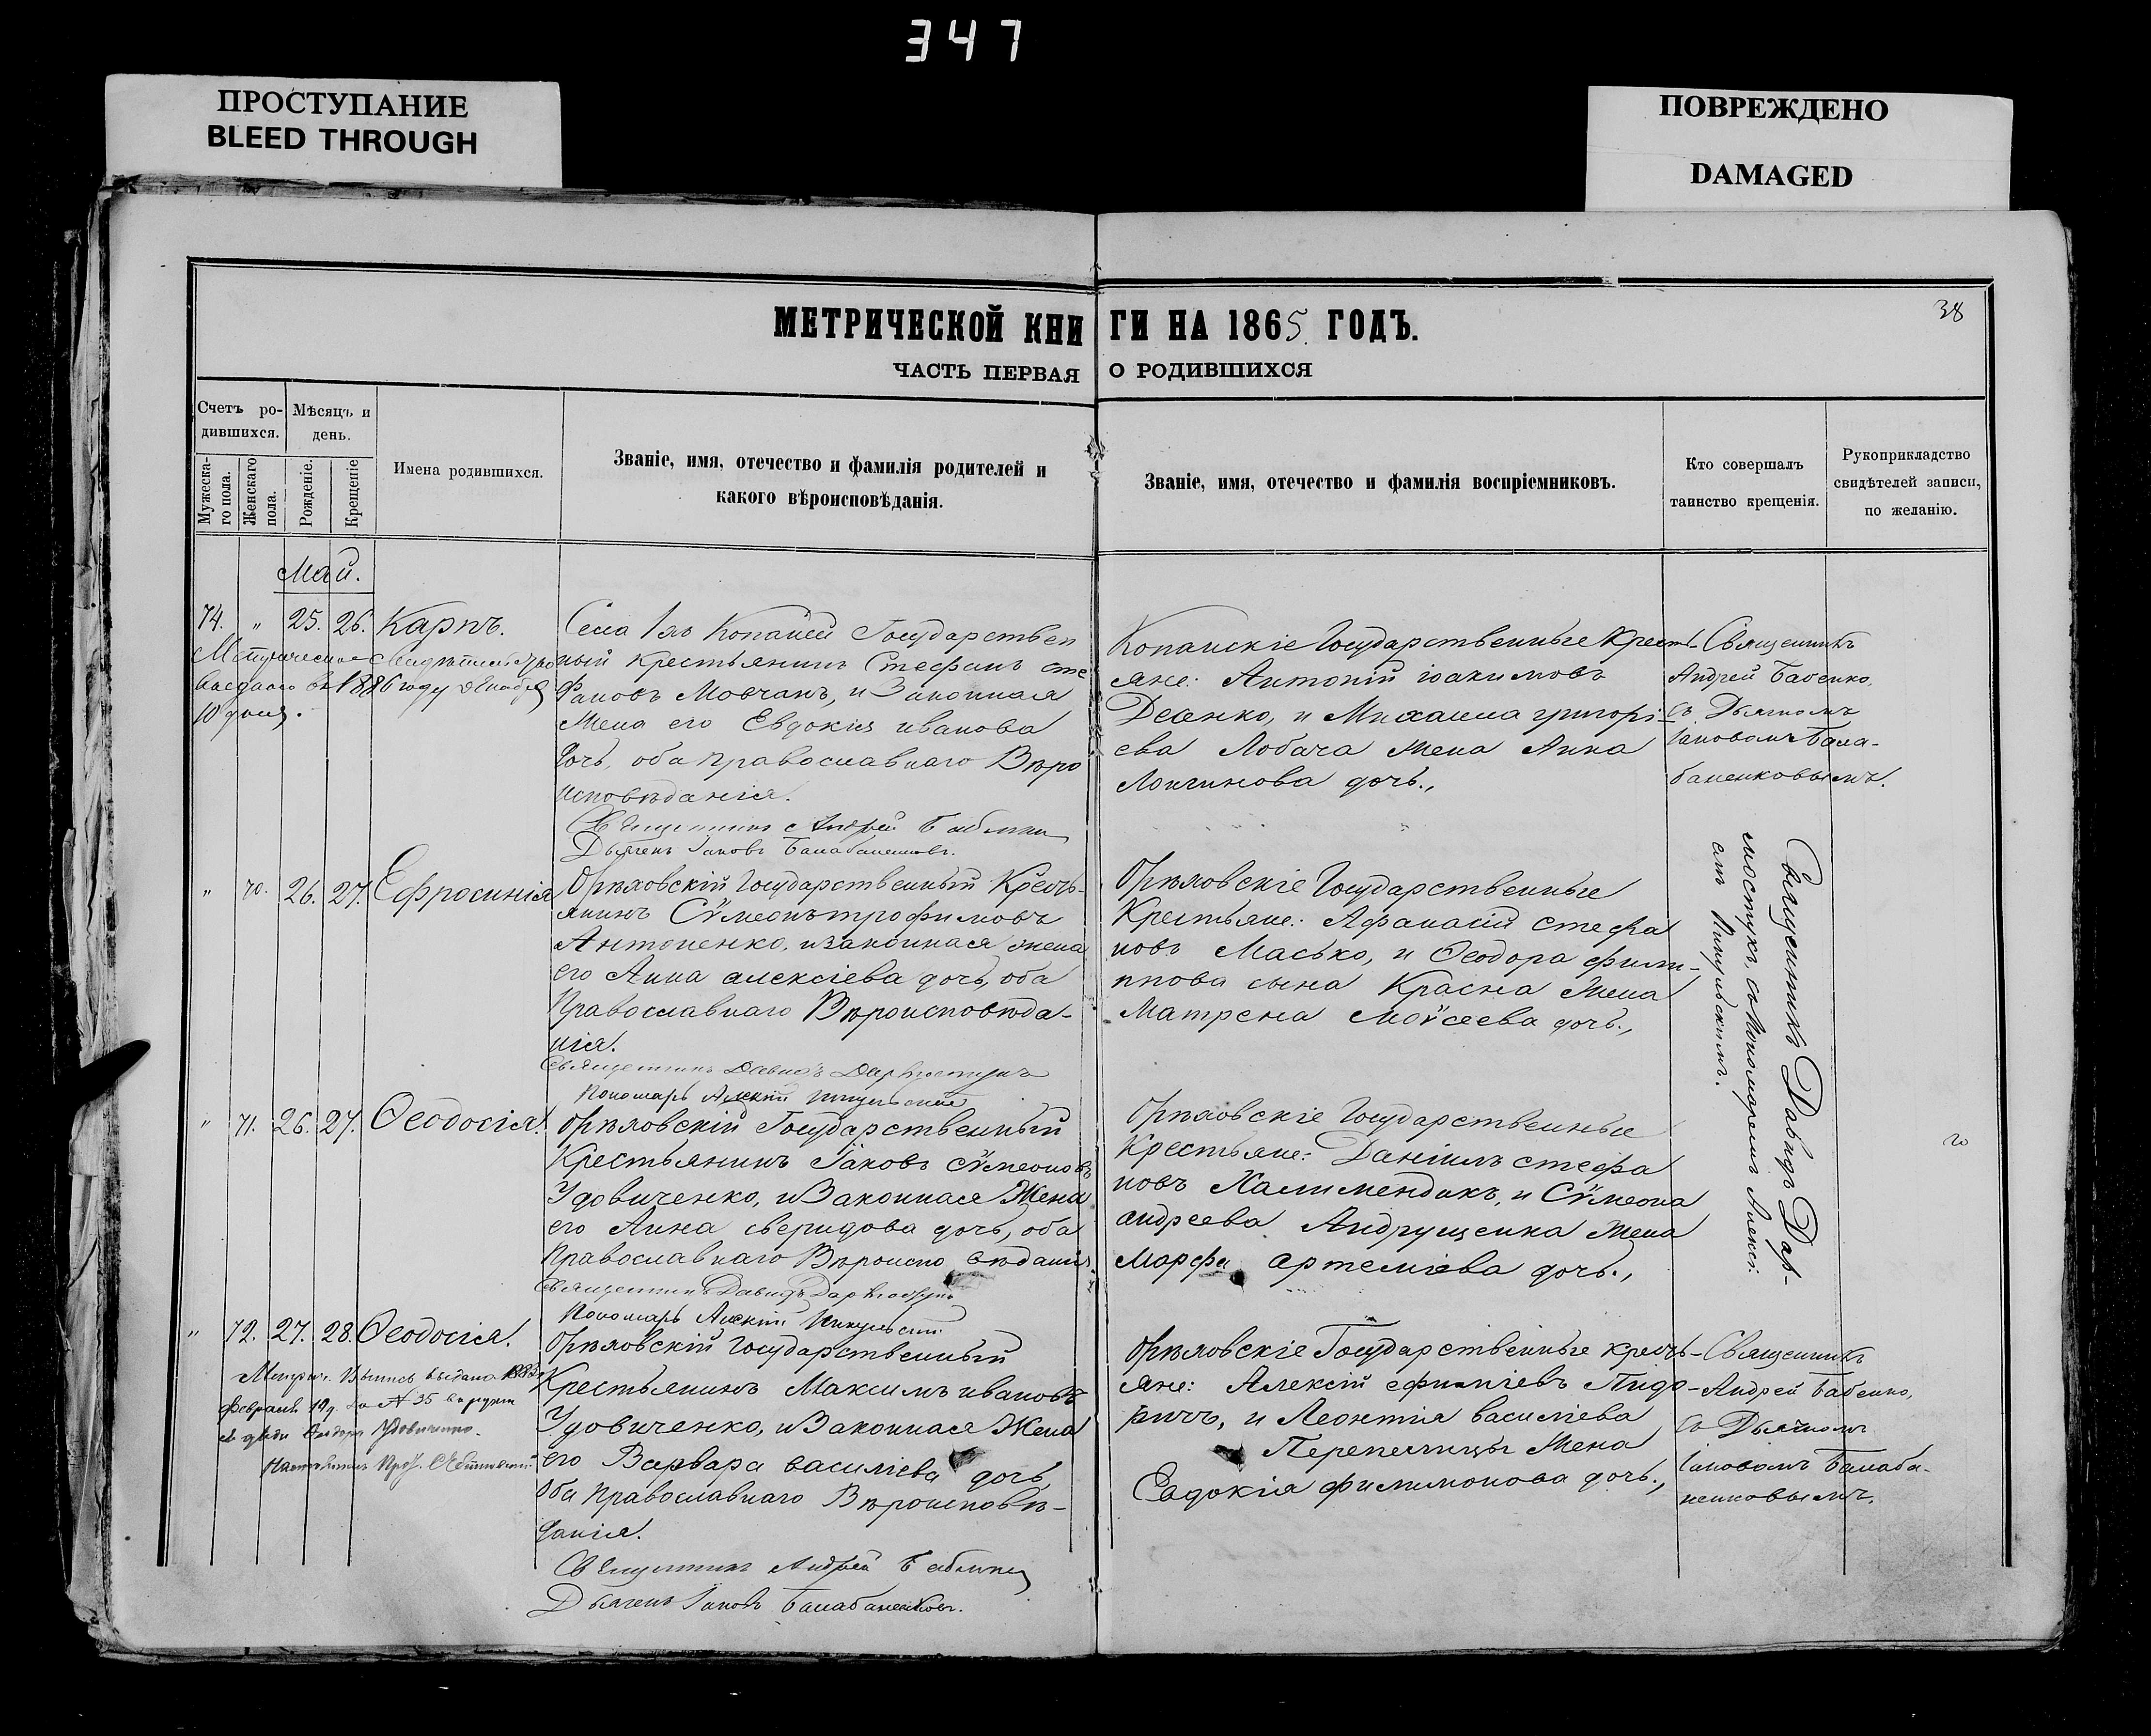 347
ПРОСТУПАНИЕ
BLEED THROUGH
ПОВРЕЖДЕНО
DAMAGED
38
МЕТРИЧЕСКОЙ КНИ ГИ НА 1865 ГОДЪ.
ЧАСТЬ ПЕРВАЯ О РОДИВШИХСЯ
Счетъ ро-
дившихся.
Мужеска-
го пола.
Женскаго
пола.
Мѣсяцъ и
день.
Рожденіе.
Крещеніе
Имена родившихся.
Званіе, имя, отечество и фамилія родителей и
какого вѣроисповѣданія.
Званіе, имя, отечество и фамилія воспріемниковъ.
Кто совершалъ
таинство крещенія.
Рукоприкладство
свидѣтелей записи,
по желанію.
Май.
74. " 25. 26. Карпъ.
1886 году
10 дня.
Села Копаней Государствен
ный крестьянинъ Стефанъ сте
фановъ Мовчанъ, и Законная
Жена его Евдокія иванова
дочь, оба православнаго Вѣро
исповѣданія.
Священникъ Андрей Бабенко
Дьячекъ Іаковъ Балабаненковъ.
Копанскіе Государственные Кресть-
яне: Антоній іоакимовъ
Деенко, и Михаила григорі-
ева Лобача жена Анна
Лонгинова дочь.,
Священникъ
Андрей Бабенко,
съ Дьячкомъ
Іаковомъ Бала-
баненковымъ.
" 70. 26. 27. Ефросинія
Орѣховскій Государственный Кресть-
янинъ Сѵмеонъ трофимовъ
Антоненко, и законная жена
его Анна алексіева дочь, оба
Православнаго Вѣроисповѣда-
нія.
Священникъ Давидъ
Пономарь Алексій
Орѣховскіе Государственные
Крестьяне: Афанасій стефа
новъ Масько, и Ѳеодора фили-
ппова сына Красна жена
Матрена моѵсеева дочь.,
Священникъ Давидъ Дар-
съ Пономаремъ Алексі-
емъ
" 71. 26. 27. Ѳеодосія.
Орѣховскій Государственный
Крестьянинъ Іаковъ сѵмеоновъ
Удовиченко, и Законная Жена
его Анна сверидова дочь, оба
Православнаго Вѣроиспо вѣданія.
Священникъ Давидъ
Пономарь Алексій
Орѣховскіе Государственные
Крестьяне: Даніилъ стефа
новъ Халимендикъ, и Сѵмеона
андреева Андрущенка жена
Марфа артеміева дочь.,
20
" 72. 27. 28. Ѳеодосія.
Выпись выдана 1883
Февраля 19 д. за № 35
Орѣховскій Государственный
Крестьянинъ Максимъ ивановъ
Удовиченко, и Законная Жена
его Варвара василіева дочь
оба Православнаго Вѣроисповѣ-
данія.
Священникъ Андрей Бабенко
Дьячекъ Іаковъ Балабаненковъ.
Орѣховскіе Государственные кресть-
яне: Алексій ефиміевъ Пидо-
ричъ, и Леонтія василіева
Перепелицы Жена
Евдокія филимонова дочь.,
Священникъ
Андрей Бабенко,
съ Дьячкомъ
Іаковомъ Балаба-
ненковымъ.